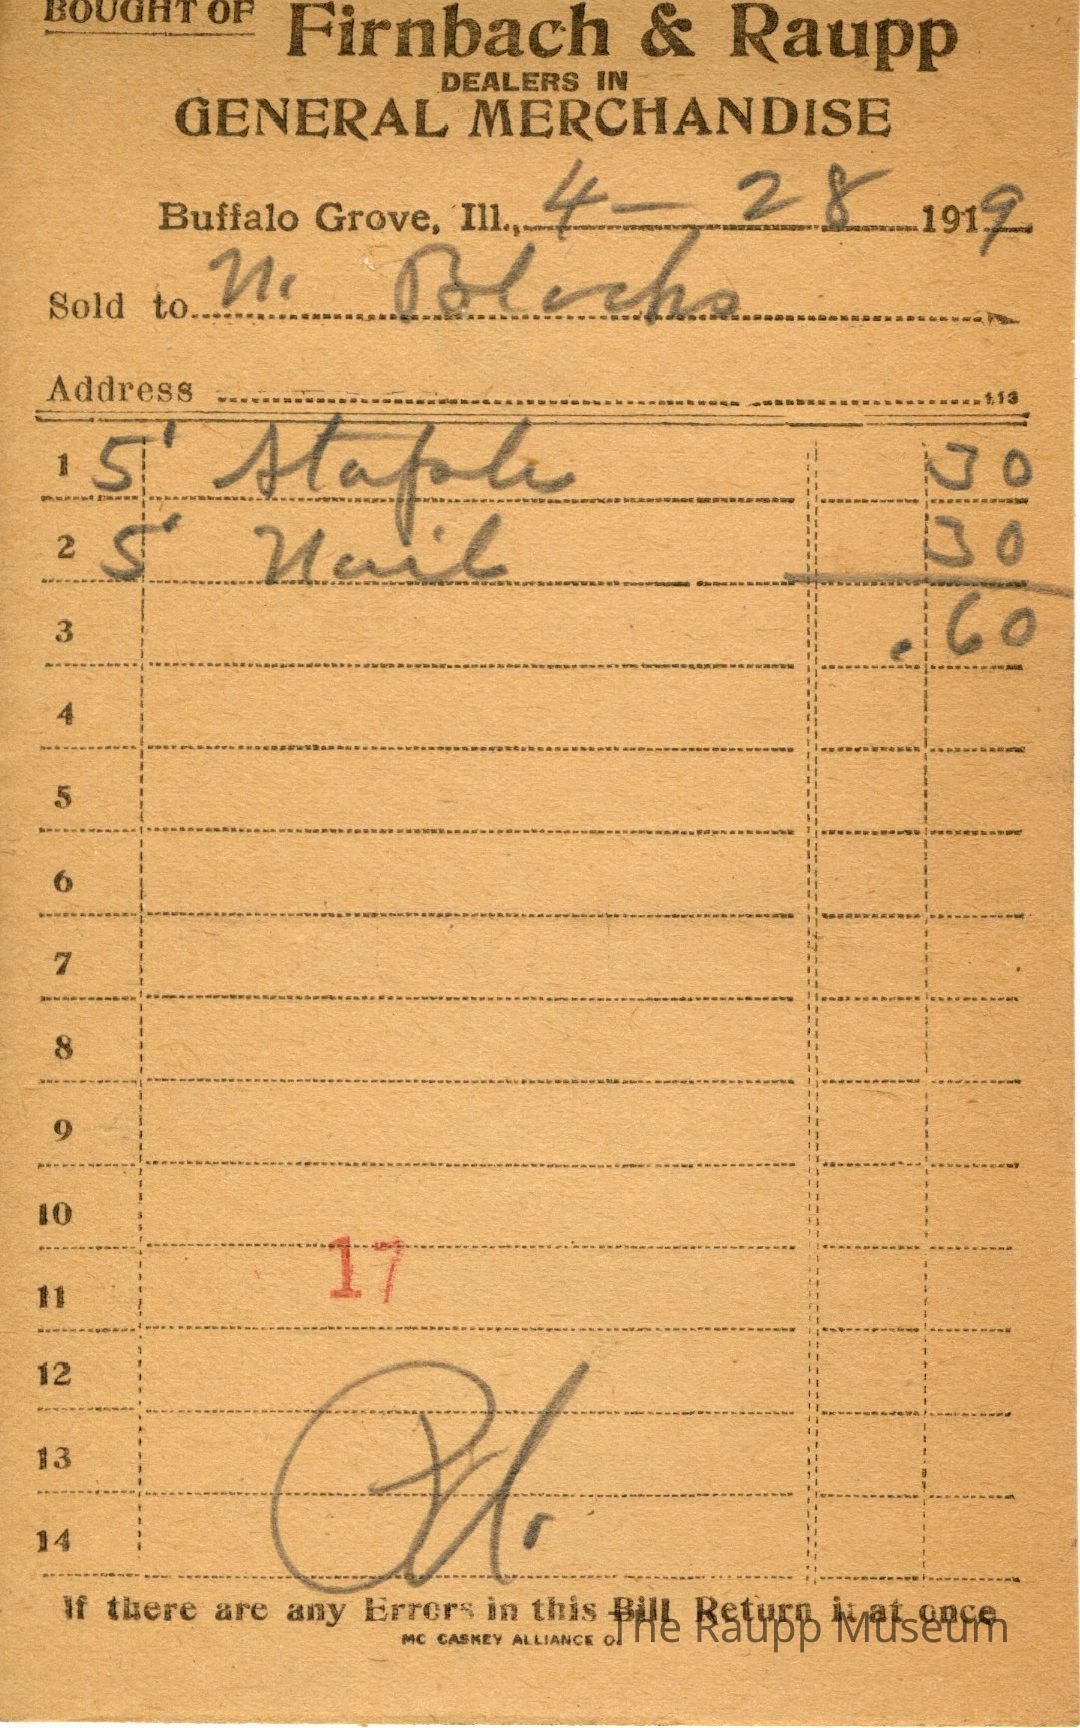 BOUGHT OF
Firnbach & Raupp
DEALERS IN
GENERAL MERCHANDISE
Buffalo Grove, Ill., 4 - 28 1919
Sold to N. Blocks
Address
113
1 5' Staple 30
2 5' Nail 30
3 .60
4
5
6
7
8
9
10
17
11
12
13
Pd.
14
If there are any Errors in this Bill Return it at once
MC CASKEY ALLIANCE O.
The Raupp Museum